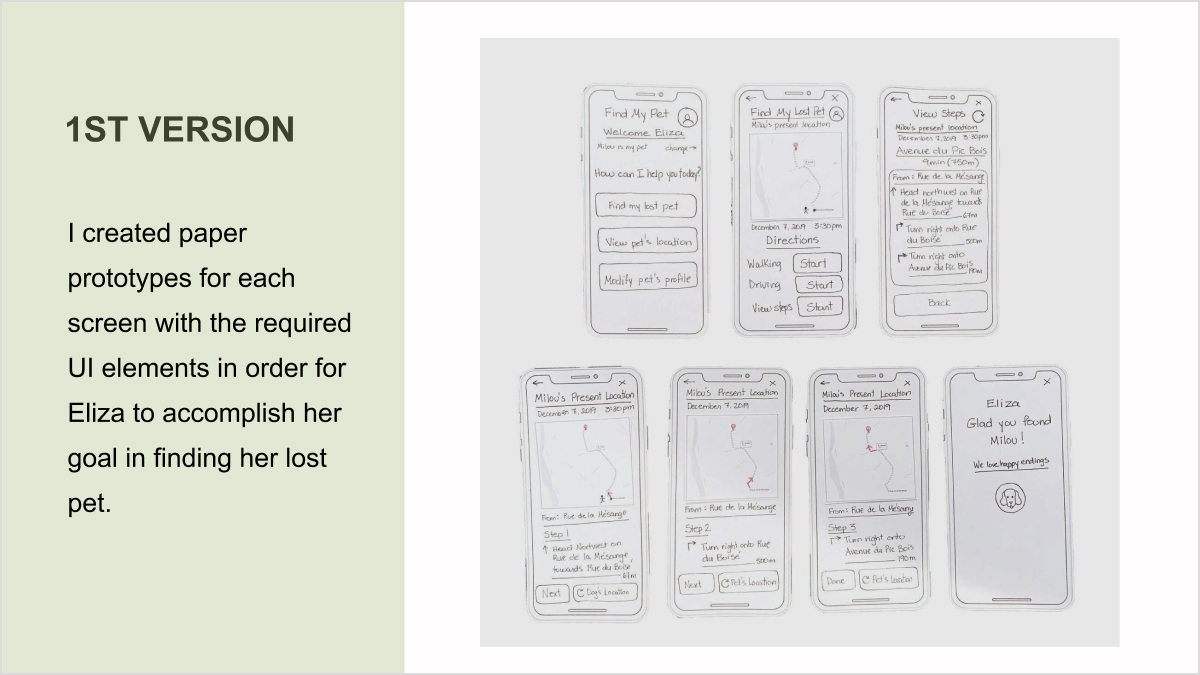 1ST VERSION
I created paper
prototypes for each
screen with the required
UI elements in order for
Eliza to accomplish her
goal in finding her lost
pet.
Find My Pet
Welcome Eliza
Milou is my pet change→
How can I help you today?
Find my lost pet
View pet's location
Modify pet's profile
← ×
Find My Lost Pet
Milou's present location
December 7, 2019 3:30pm
Directions
Walking Start
Driving Start
View steps Start
← ×
View Steps
Milou's present location
December 7, 2019 3:30pm
Avenue du Pic Bois
9min (750m)
From: Rue de la Mésange
↑ Head northwest on Rue
de la Mésange towards
Rue du Boisé 67m
Turn right onto Rue
du Boisé 500m
Turn right onto
Avenue du Pic Bois
190m
Back
← ×
Milou's Present Location
December 7, 2019 3:30pm
From: Rue de la Mésange
Step 1
↑ Head Nortwest on
Rue de la Mésange
towards Rue du Boisé
67m
Next Dog's Location
← ×
Milou's Present Location
December 7, 2019
From: Rue de la Mésange
Step 2
Turn right onto Rue
du Boisé 500m
Next Pet's Location
← ×
Milou's Present Location
December 7, 2019
From: Rue de la Mésang
Step 3
Turn right onto
Avenue du Pic Bois
190m
Done Pet's Location
×
Eliza
Glad you found
Milou!
We love happy endings